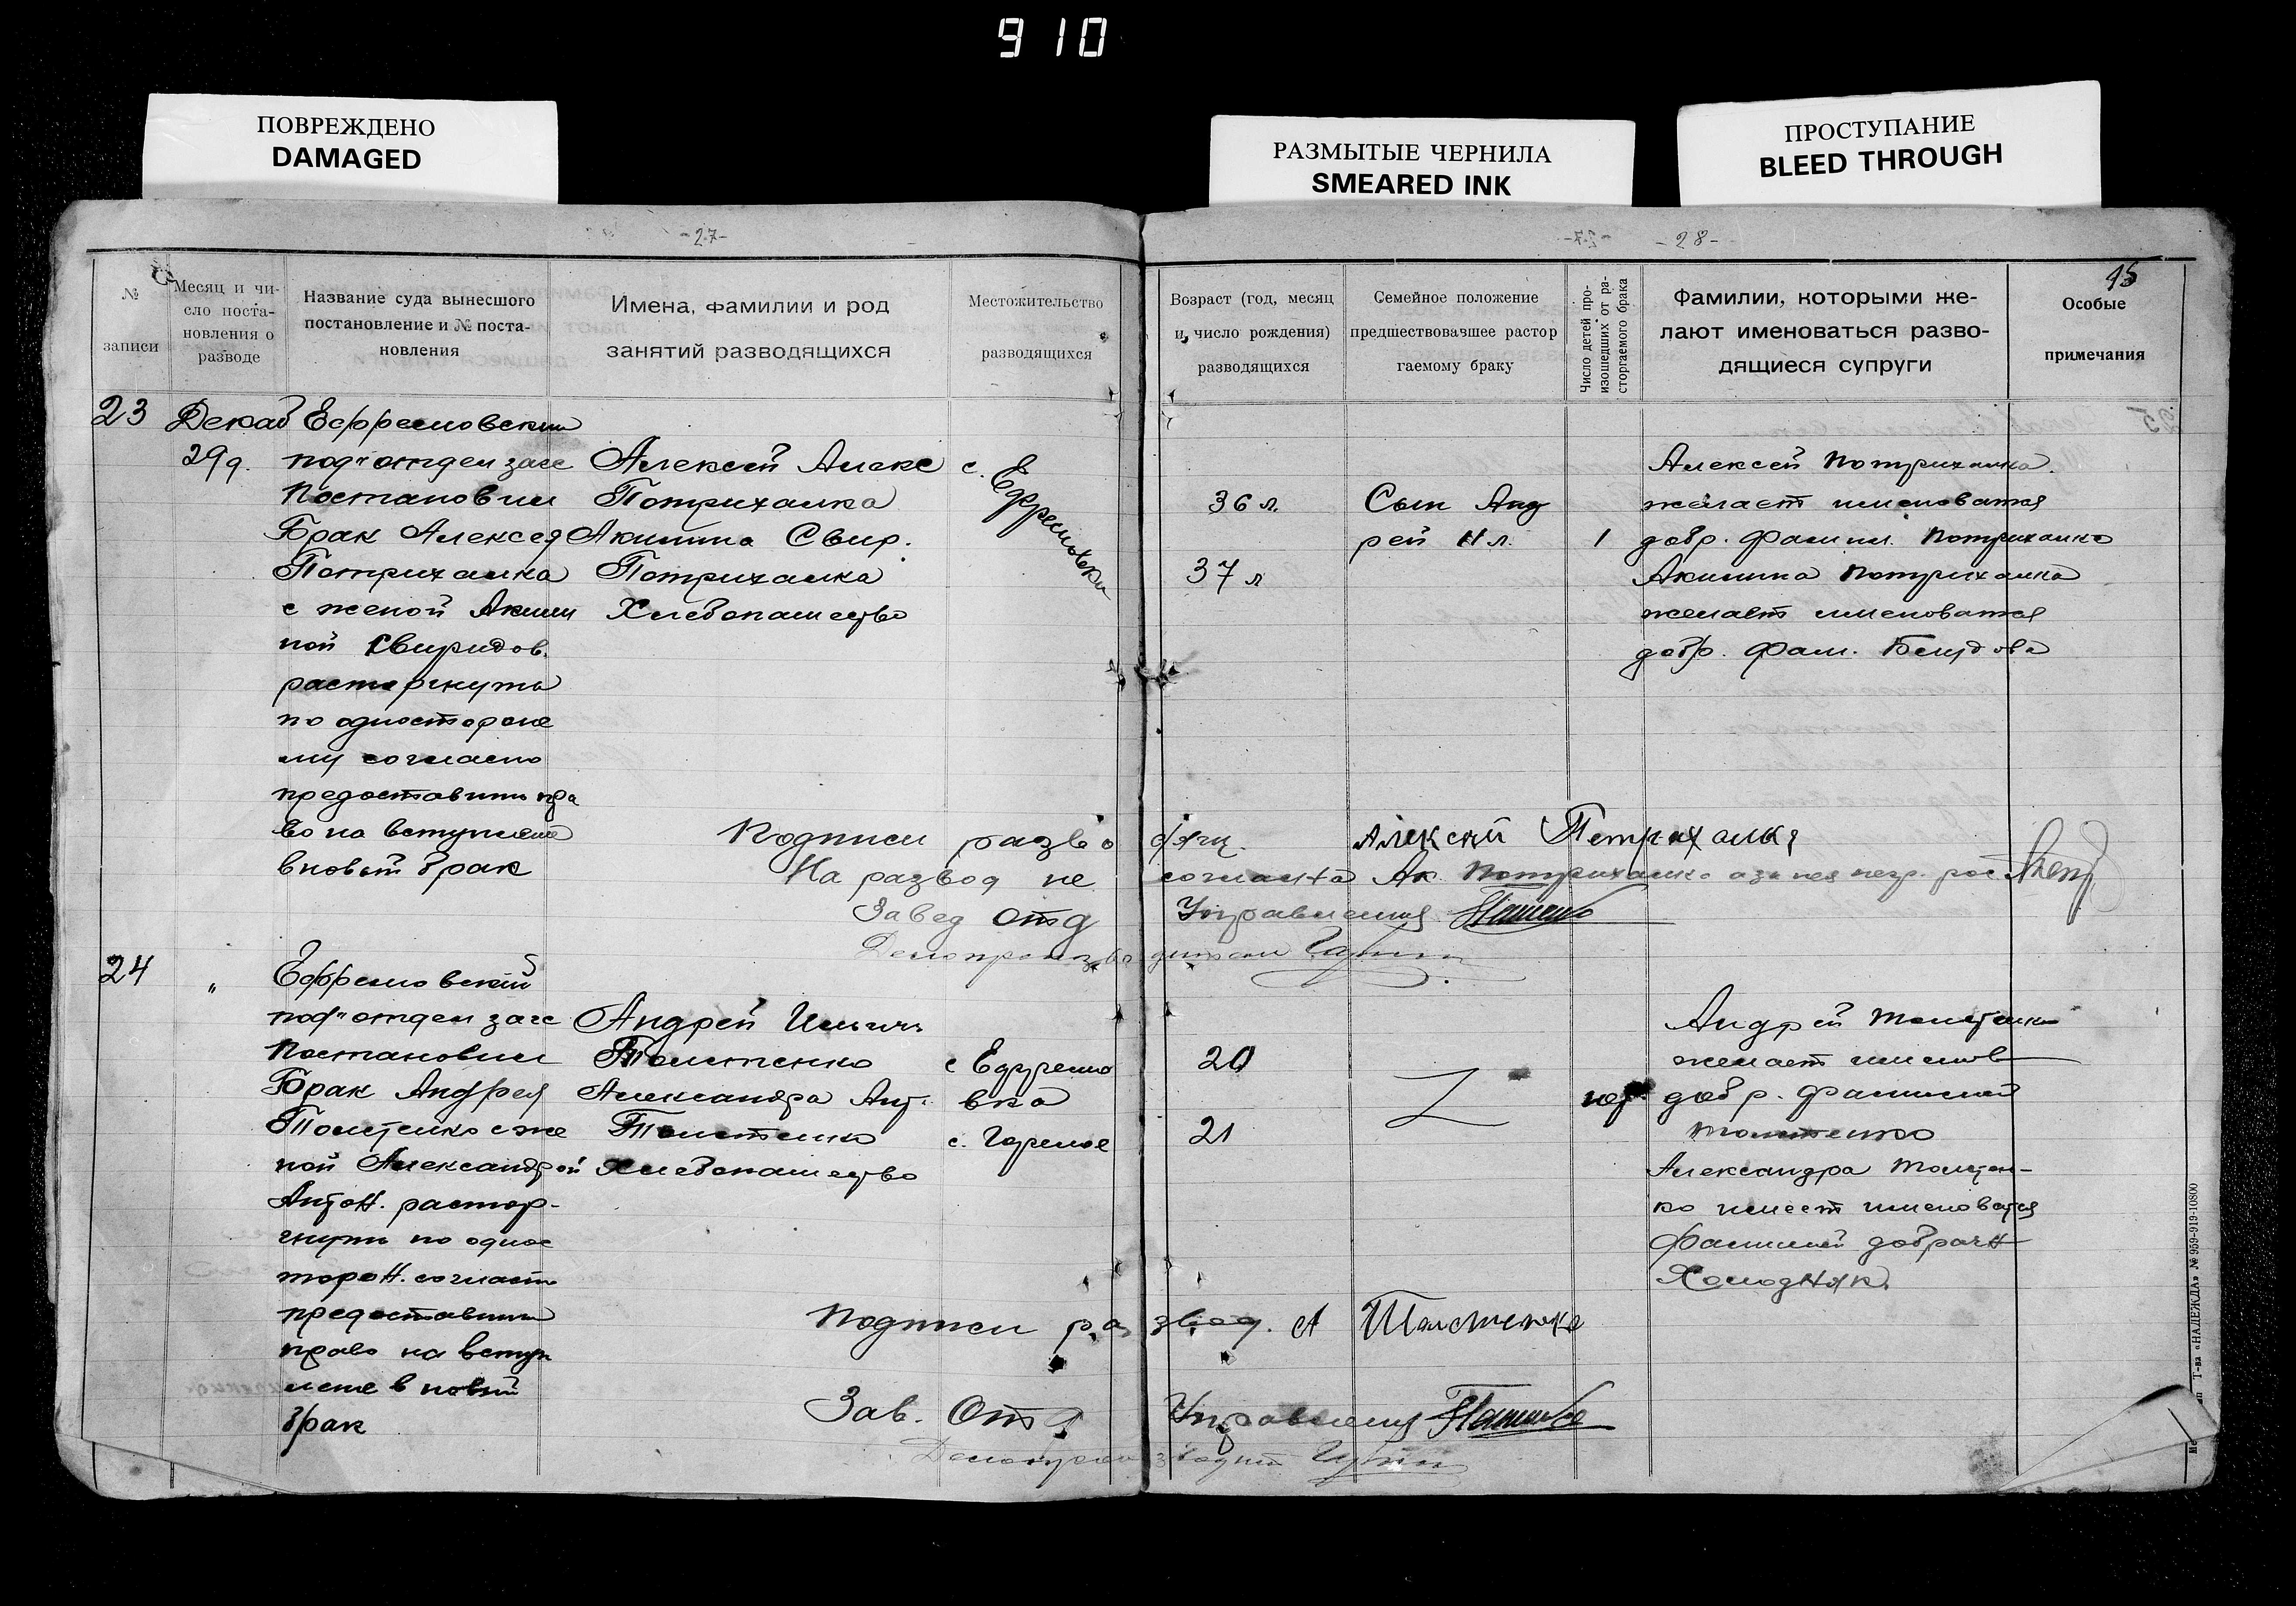 910
ПОВРЕЖДЕНО
DAMAGED
РАЗМЫТЫЕ ЧЕРНИЛА
SMEARED INK
ПРОСТУПАНИЕ
BLEED THROUGH
-27-
-28-
15
№
записи
Месяц и чи-
сло поста-
новления о
разводе
Название суда вынесшого
постановление и № поста-
новления
Имена, фамилии и род
занятий разводящихся
Местожительство
разводящихся
Возраст (год, месяц
и, число рождения)
разводящихся
Семейное положение
предшествовавшее растор
гаемому браку
Число детей про-
изошедших от ра-
сторгаемого брака
Фамилии, которыми же-
лают именоваться разво-
дящиеся супруги
Особые
примечания
23
Декаб
29д.
Ефремовский
под"отдел загс
Постановил
Брак Алексея
Потрихалка
с женой Акили
ной Свиридов.
расторгнуть
по одностороне
му согласию
предоставить пра
во на вступление
в новый брак
Алексей Алекс
Потрихалка
Акилина Свир.
Потрихалка
Хлебопашество
с. Ефремовка
36 л.
37 л
Сын Анд
рей 11 л.
1
Алексей Потрихалка.
желает именоватся
добр. фамил. Потрихалка
Акилина Потрихалка
желает именоватся
добр. фам.
Подписи развो дящ. Алексей Потрихалка
На развод не согласна Ак. Потрихалка
Завед Отд Управления
Делопроизводитель
24
"
Ефремовский
под"отдел загс
Постановил
Брак Андрея
Толстенко с же
ной Александрой
Антон. растор-
гнуть по однос
торон. согласи
предоставить
право на вступ
ление в новый
брак
Андрей Ильич
Толстенко
Александра Ант.
Толстенко
Хлебопашество
с Ефремо
вка
с. Горелое
20
21
нет
Андрей Толстенко
желает именов
добр. фамилией
Толстенко
Александра Толстен-
ко имеет именоватся
фамилией добрачн
Холодняк.
Подписи развод. А Толстенко
Зав. Отд Управления
Делопроизводит
Т-ва «НАДЕЖДА» № 959-919-10800